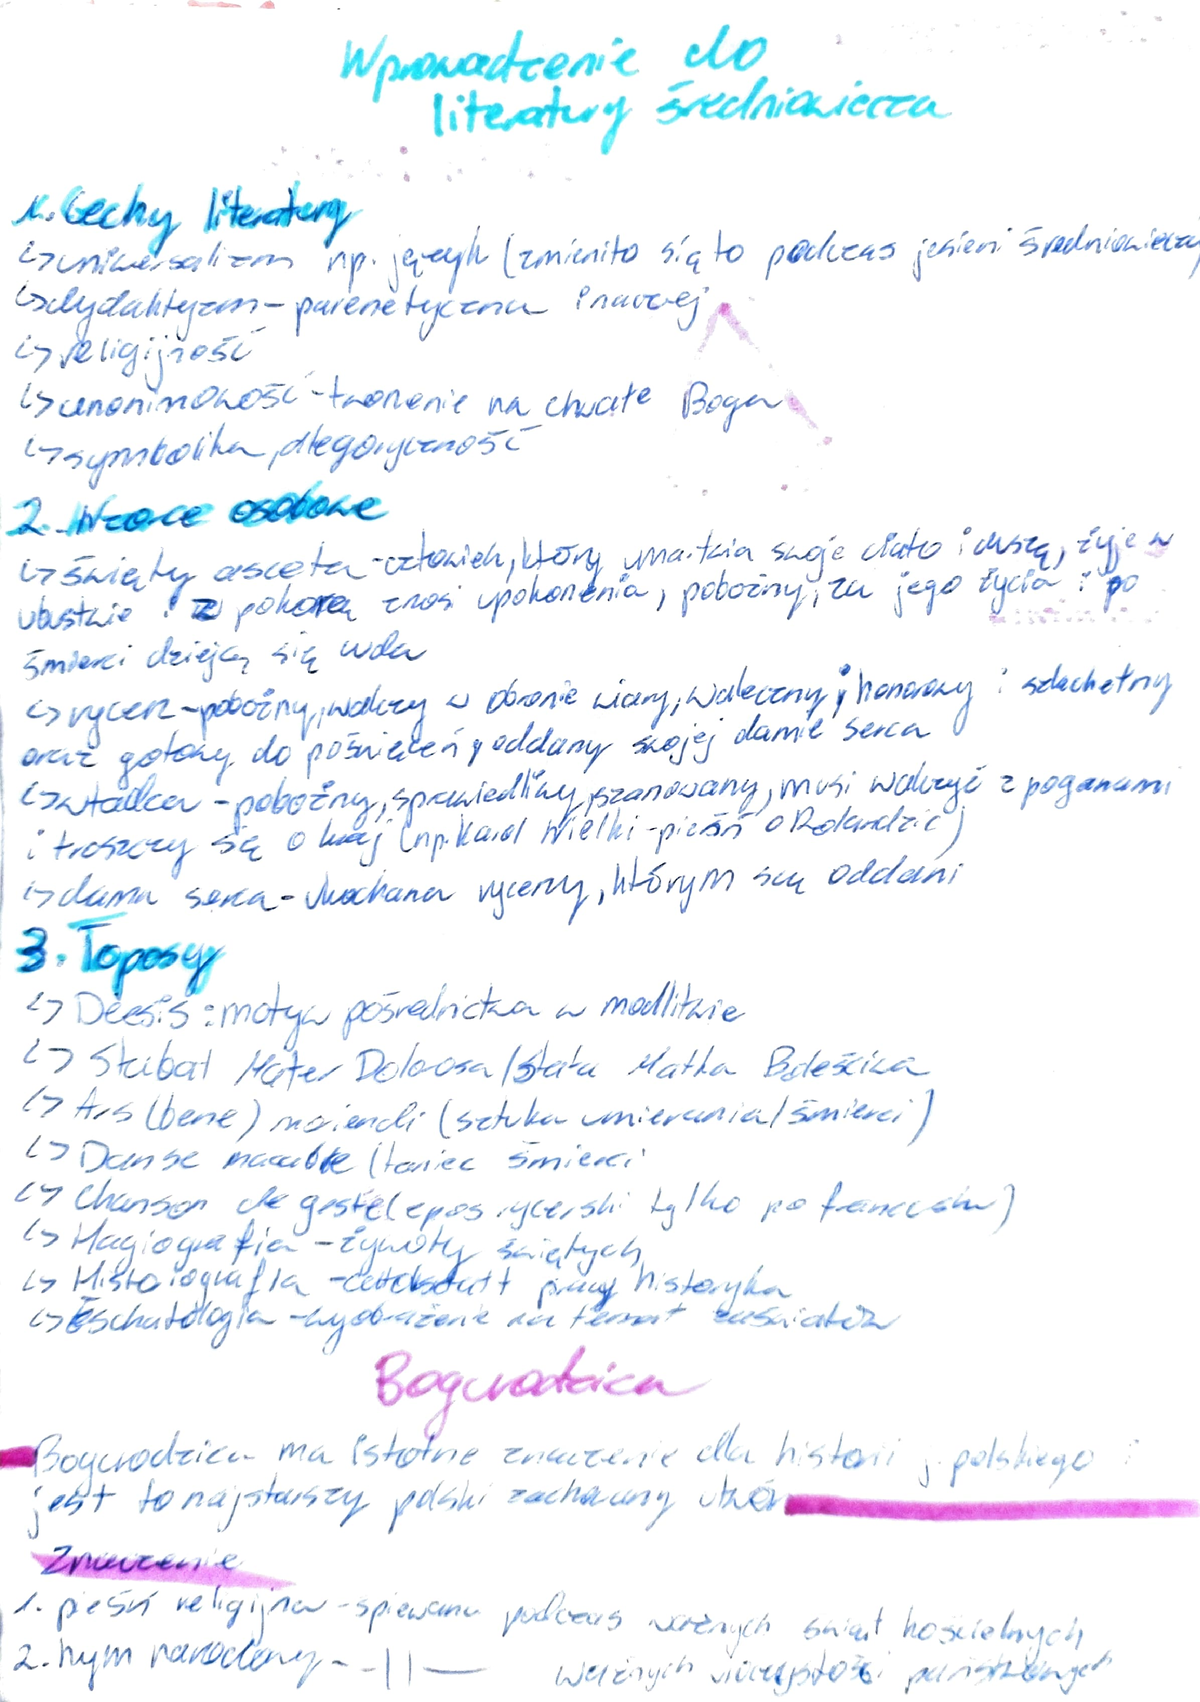 Wprowadzenie do
literatury średniowiecza
1. Cechy literatury
↳ uniwersalizm np. język (zmieniło się to podczas jesieni średniowiecza)
↳ dydaktyzm - parenetyczna inaczej
↳ religijność
↳ anonimowość - tworzenie na chwałe Boga
↳ symbolika, alegoryczność
2. Wzorce osobowe
↳ święty asceta - człowiek, który umartwia swoje ciało i duszą, żyje w
ubustwie i z pokorą znosi upokorzenia, pobożny, za jego życia i po
śmierci dzieją się cuda
↳ rycerz - pobożny, walczy w obronie wiary, waleczny, honorowy i szlachetny
oraz gotowy do poświęceń, oddany swojej damie serca
↳ władca - pobożny, sprawiedliwy, szanowany, musi walczyć z poganami
i troszczy się o kraj (np. Karol Wielki - pieśń o Rolandzie)
↳ dama serca - ukochana rycerzy, którym są oddani
3. Toposy
↳ Deesis: motyw pośrednictwa w modlitwie
↳ Stabat Mater Dolorosa / Stała Matka Boleściwa
↳ Ars (bene) moriendi (sztuka umierania / śmierci)
↳ Danse macabre (taniec śmierci
↳ Chanson de geste (epos rycerski tylko po francusku)
↳ Hagiografia - żywoty świętych
↳ Historiografia - pracy historyka
↳ Eschatologia - wyobrażenie na temat zaświatów
Bogurodzica
Bogurodzica ma istotne znaczenie dla historii j. polskiego i
jest to najstarszy polski zachowany utwór
Znaczenie
1. pieśń religijna - śpiewana podczas ważnych świąt kościelnych
2. hymn narodowy - -||- ważnych uroczystości państwowych